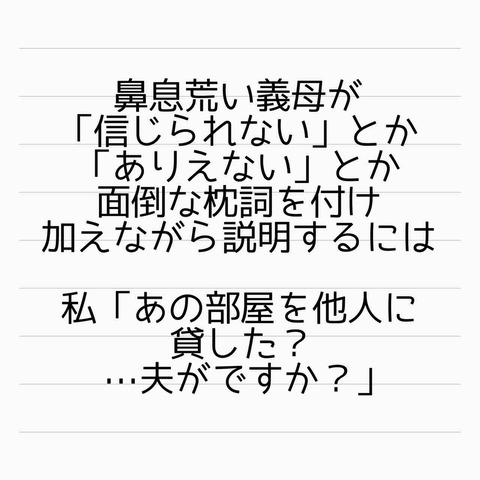 鼻息荒い義母が
「信じられない」とか
「ありえない」とか
面倒な枕詞を付け
加えながら説明するには
私「あの部屋を他人に
貸した?
…夫がですか?」